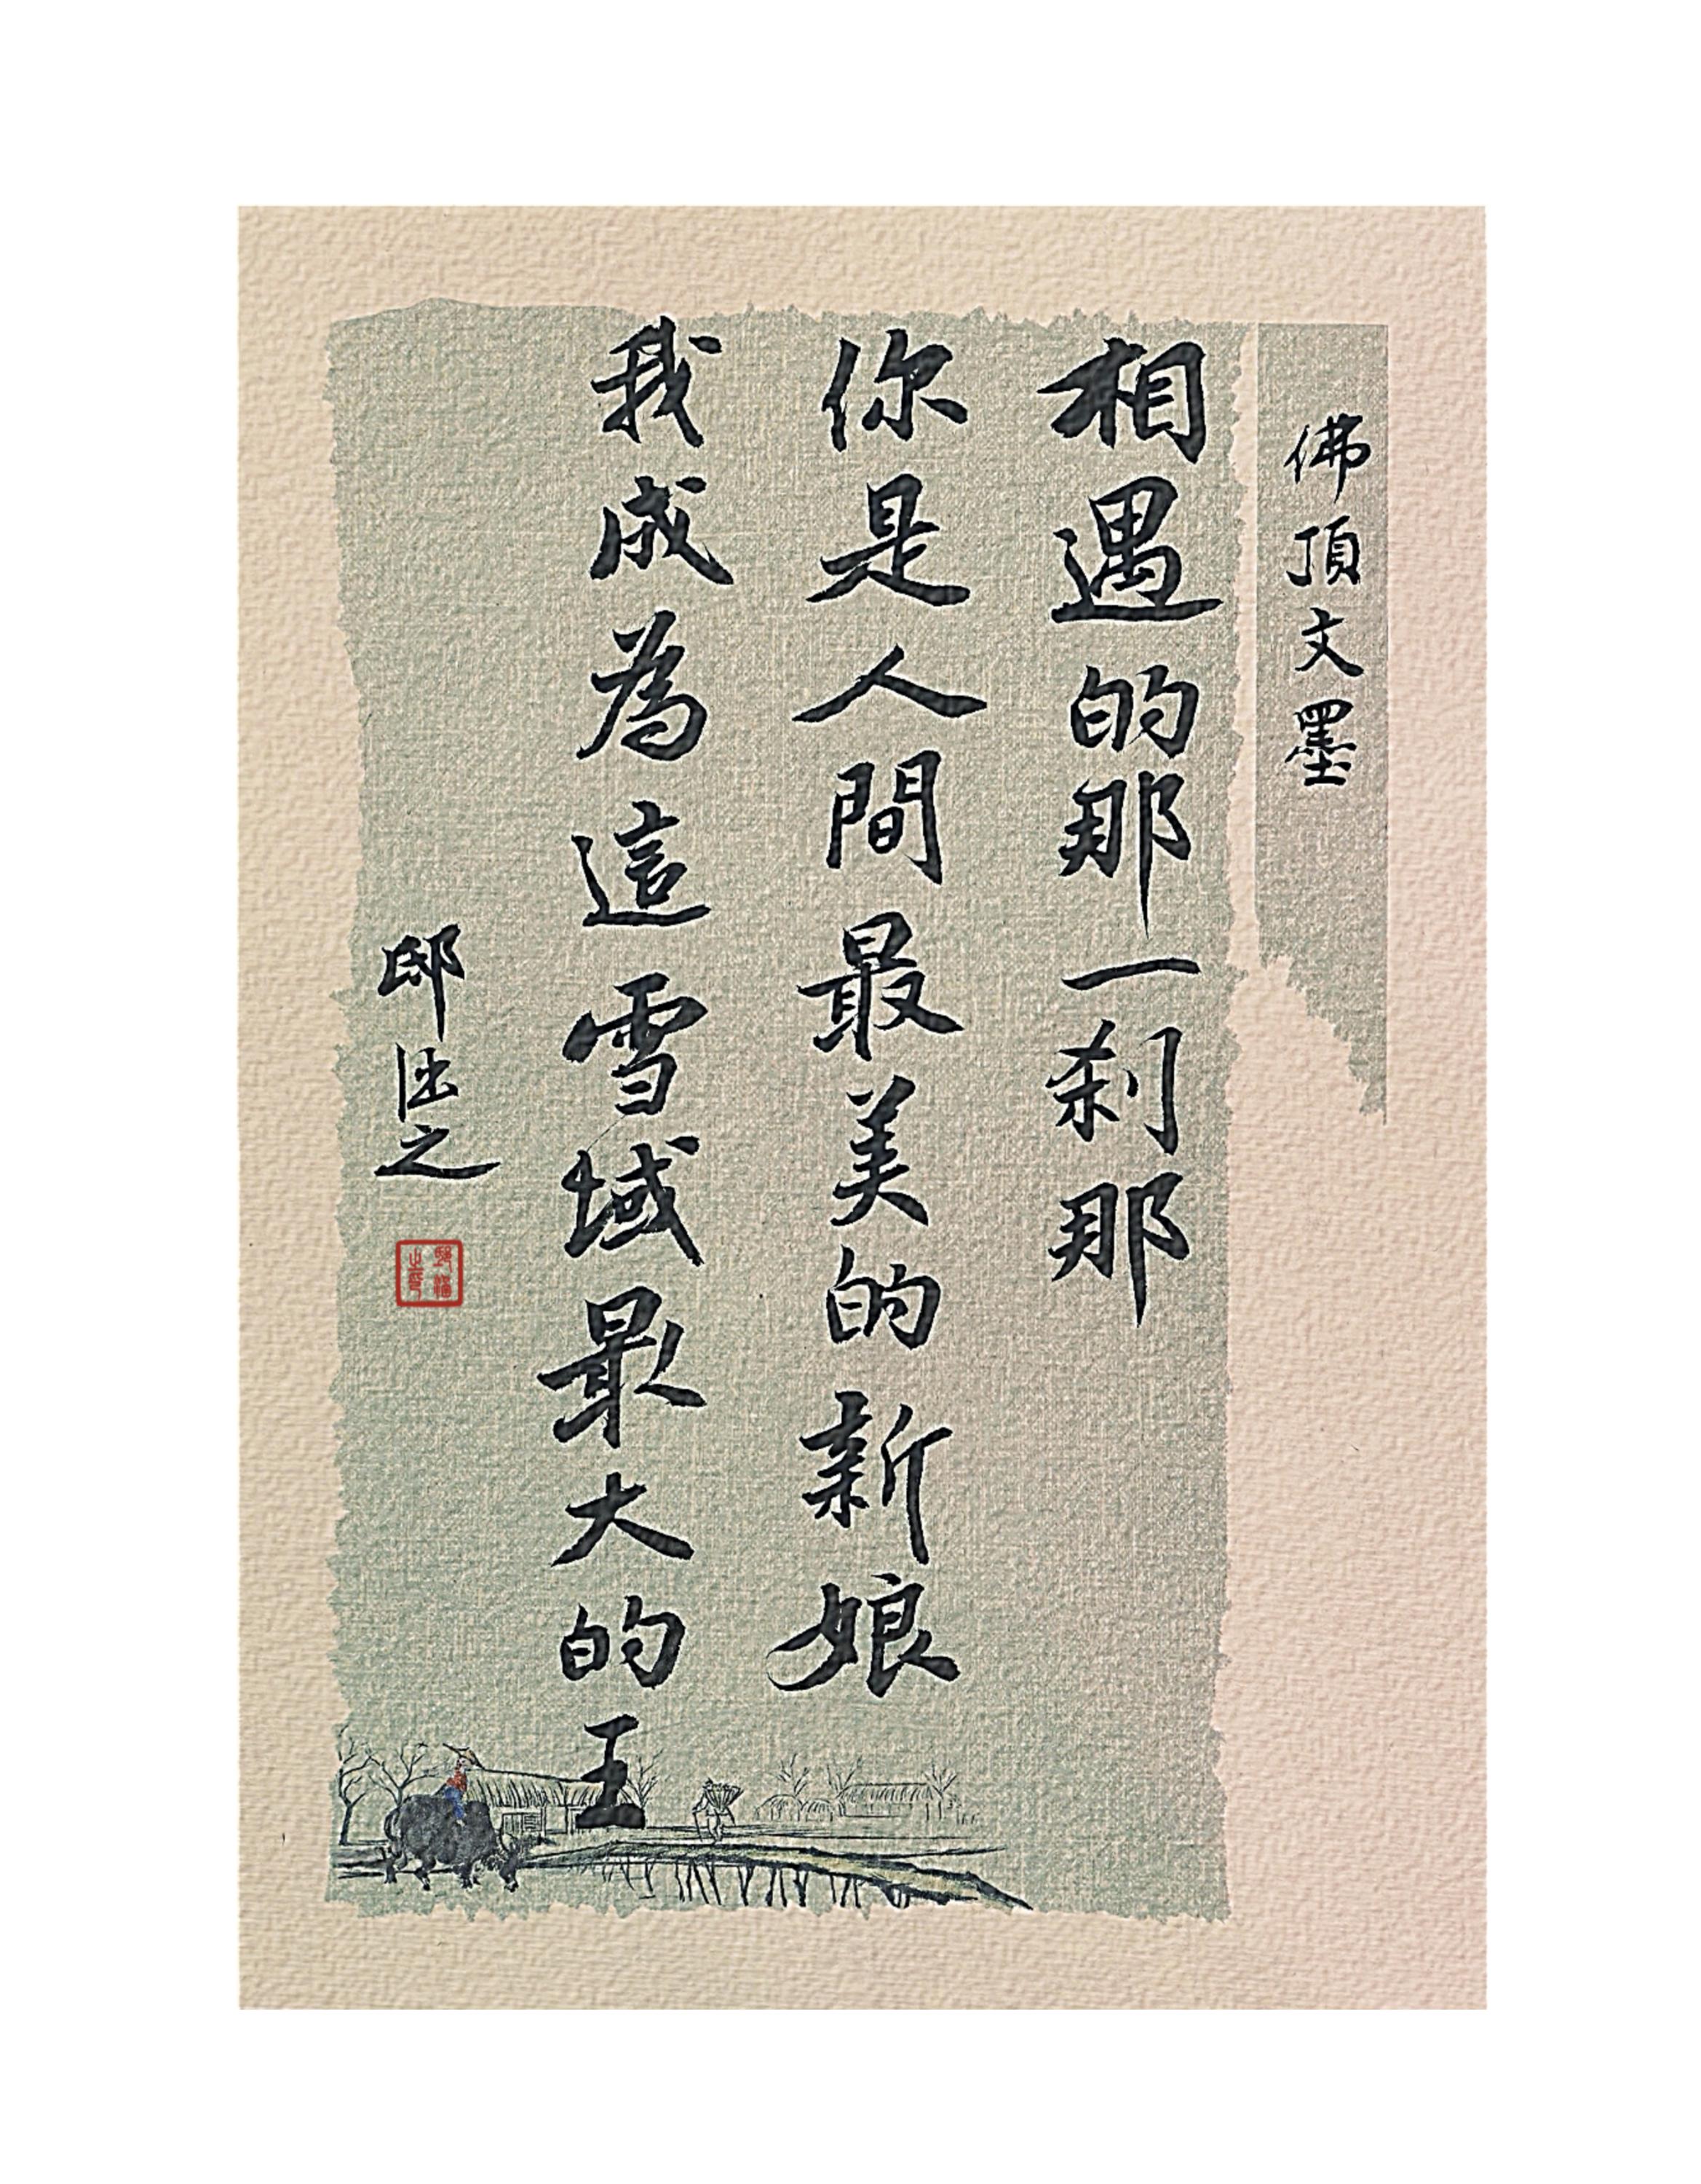 佛頂文墨
相遇的那一刹那
你是人間最美的新娘
我成為這雪域最大的王
邸
之